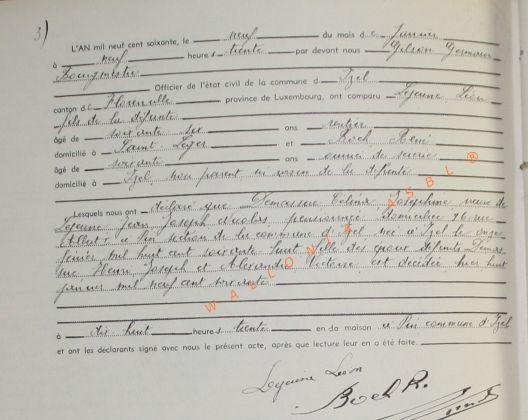 3)
L'AN mil neuf cent soixante, le neuf du mois d e Janvier
à neuf heures trente par devant nous Gilson Germain
Bourgmestre
Officier de l'état civil de la commune d Izel
canton de Florenville province de Luxembourg, ont comparu Lejeune Léon
fils de la défunte
âgé de soixante six ans rentier
domicilié à Saint Léger et Roch René
âgé de soixante ans
domicilié à Izel, non parent ni voisin de la défunte
Lesquels nous ont déclaré que Demasсue Joséphine veuve de
Lejeune Jean Joseph Nicolas pensionnée domiciliée 96 rue
Albert à Pin section de la commune d'Izel née à Izel le onze
mil huit cent soixante huit fille des époux défunts
Henri Joseph et Alexandre Victoire est décédée hier huit
janvier mil neuf cent soixante
WALLONIA ASBL ®
à dix huit heures trente en da maison à Pin commune d'Izel
et ont les déclarants signé avec nous le présent acte, après lecture leur en a été faite.
Lejeune Léon
Roch R.